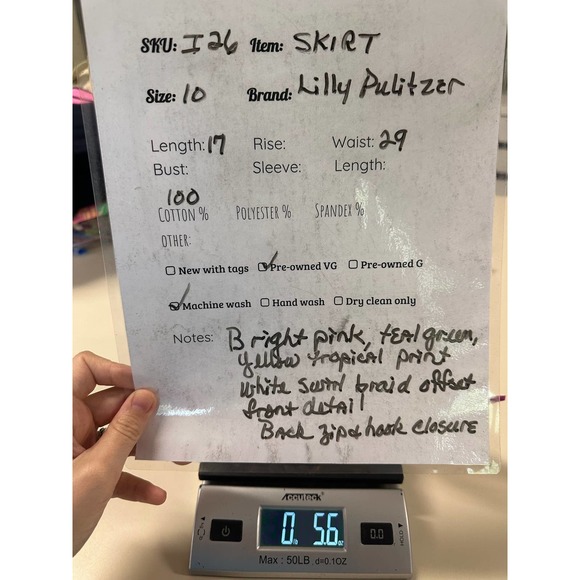 SKU: I26 Item: SKIRT
Size: 10 Brand: Lilly Pulitzer
Length: 17 Rise: Waist: 29
Bust: Sleeve: Length:
100
COTTON % POLYESTER % SPANDEX %
OTHER:
New with tags Pre-owned VG Pre-owned G
Machine wash Hand wash Dry clean only
Notes: Bright pink, teal green,
yellow tropical print
White swirl braid offset
front detail
Back zip & hook closure
Accuteck
0 lb 5.6 oz
0.0
HOLD
Max : 50LB , d=0.1OZ